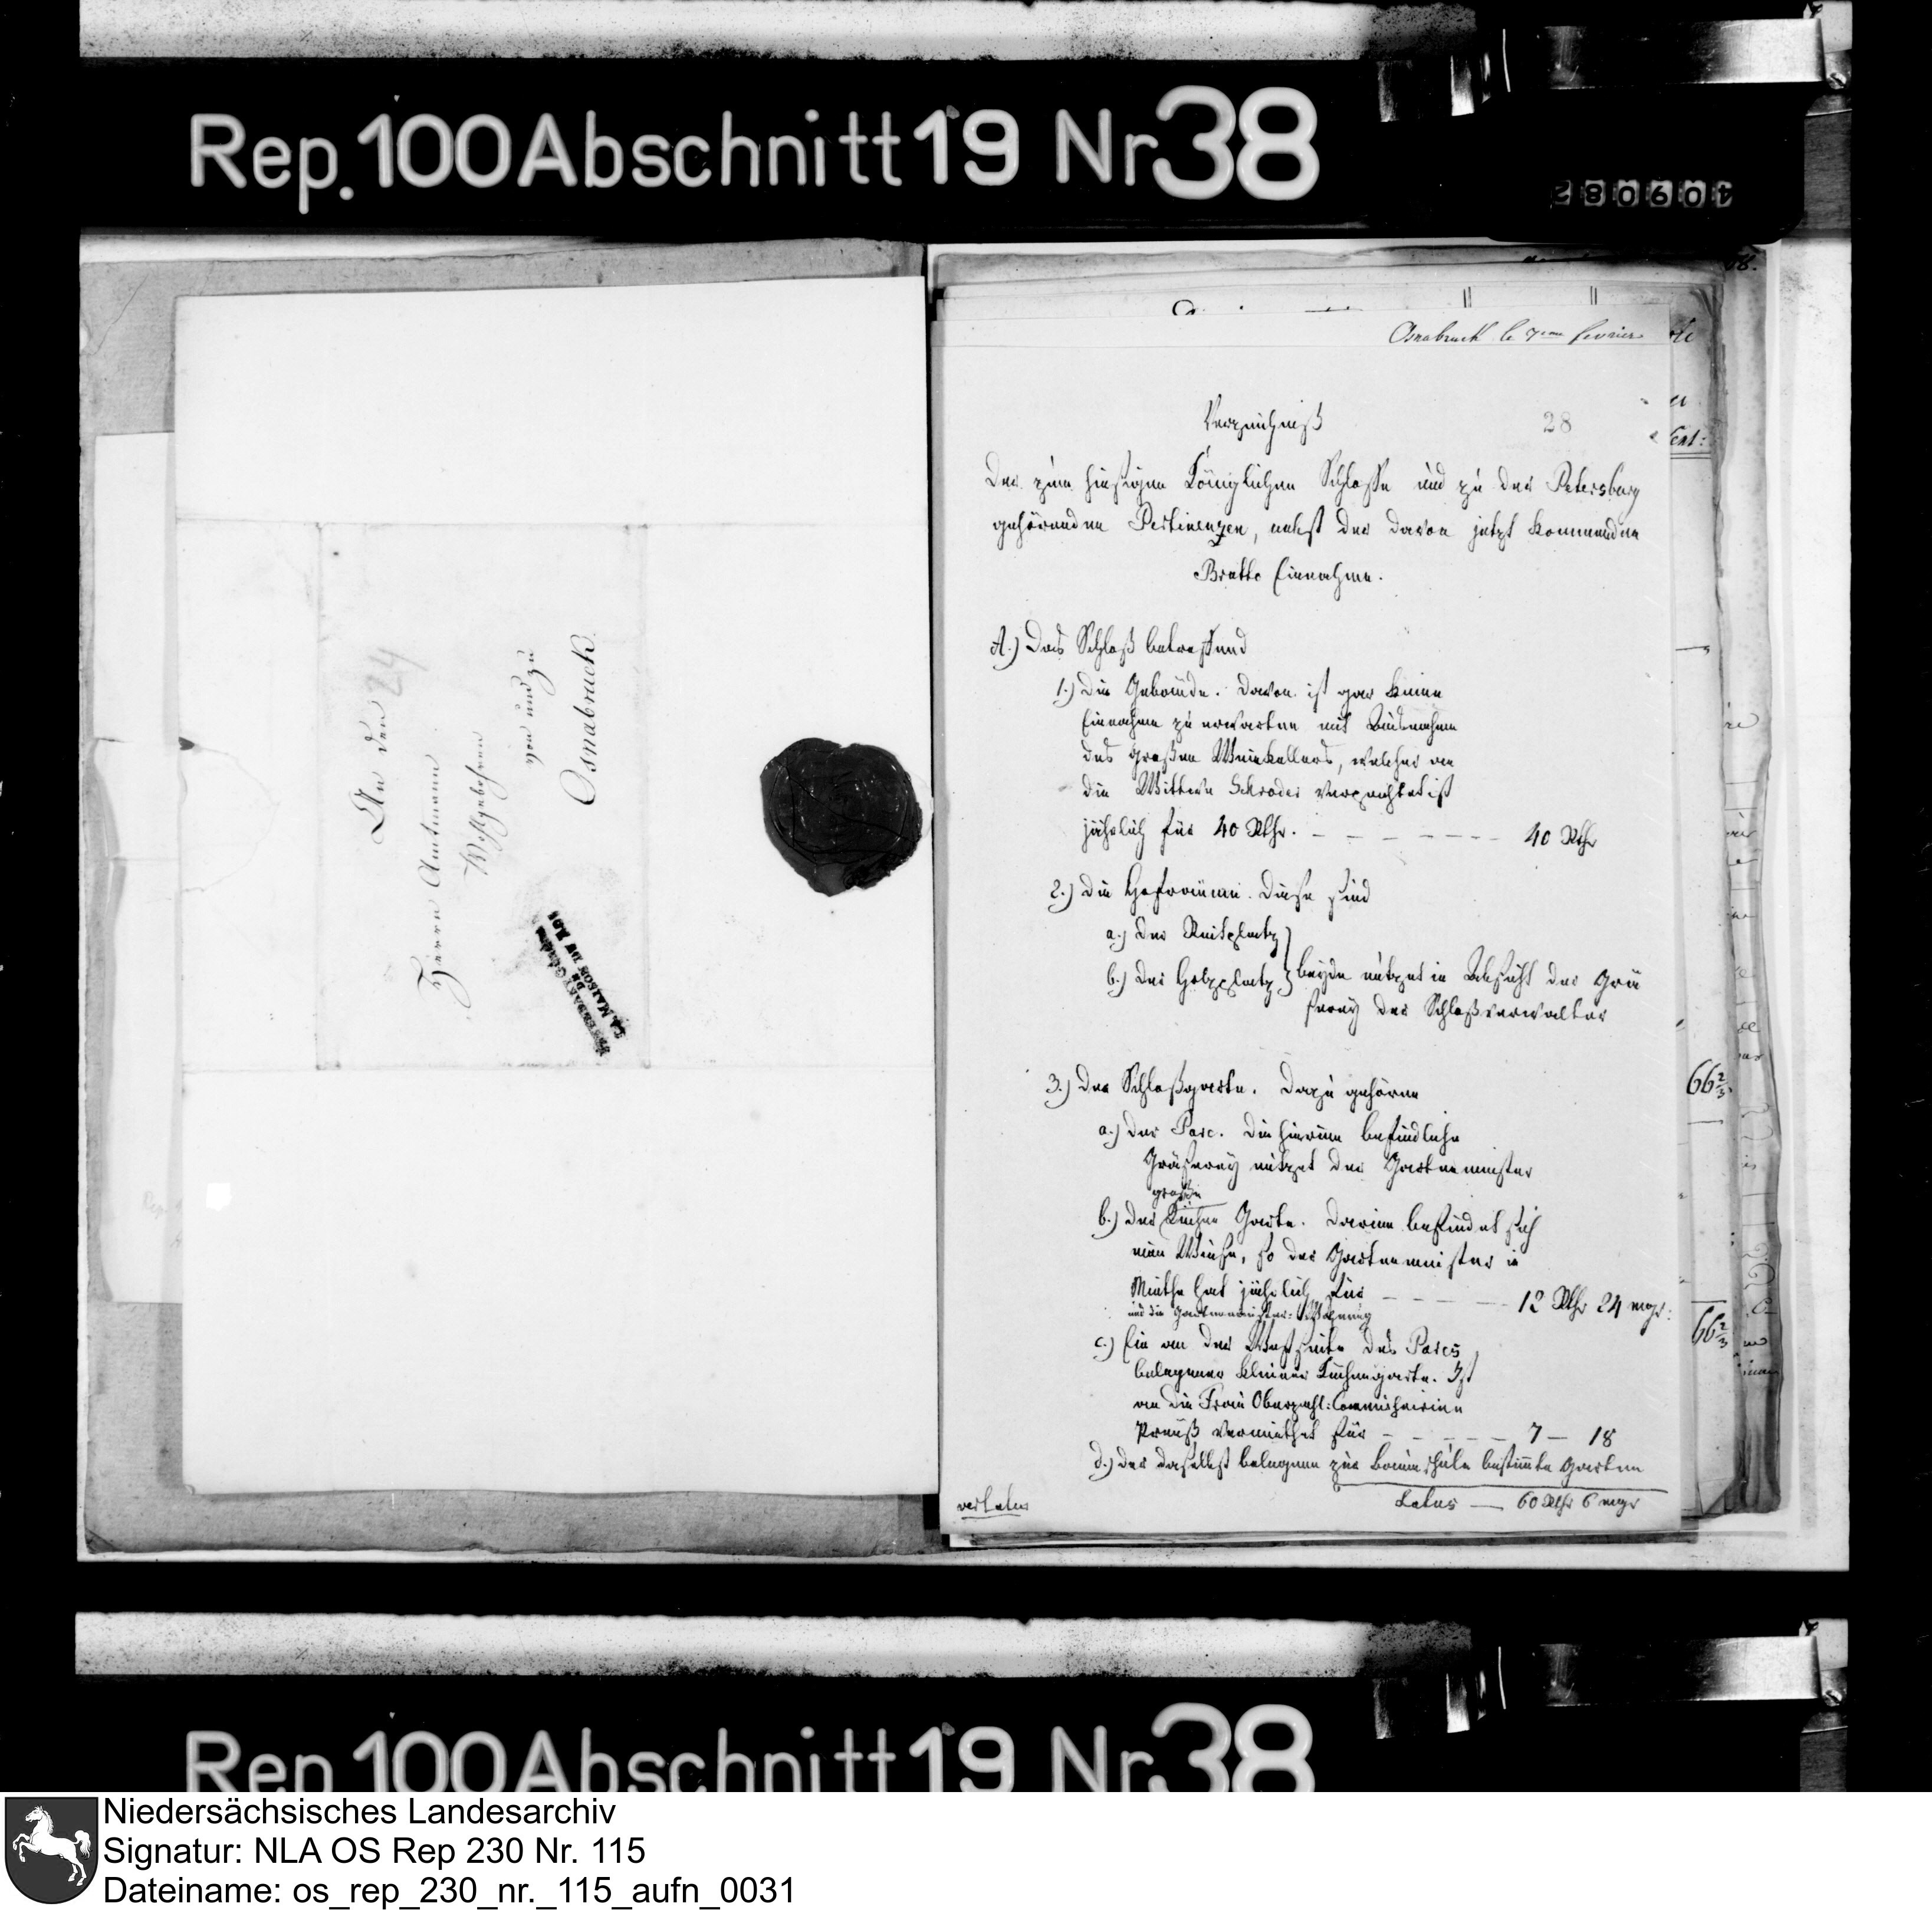 Rep. 100 Abschnitt 19 Nr 38
280601
An den 24
Herrn Amtmann
Wohlgebohren
von und zu
Osnabruck
Osnabruck le 7eme fevrier
28
Verzeichniß
Der zum hiesigen Königlichen Schlosse und zu der Petersburg
gehörenden Pertinenzen, nebst der davon jetzt kommenden
Brutto Einnahme.
A.) Das Schloß betreffend
1.) Die Gebäude. Davon ist gar keine
Einnahme zu erwarten mit Ausnahme
des großen Weinkellers, welcher an
die Wittwe Schrader verpachtet ist
jährlich für 40 Rthr. - - - - - - 40 Rthr
2.) Die Hofräume. Diese sind
a.) Der Reitplatz
b.) Der Holzplatz } beyde nützet in Absicht der Grä
serey der Schloßverwalter
3.) Der Schloßgarten. Dazu gehören
a.) Der Parc. Die hierinn befindliche
Gräserey nützet der Gartenmeister
große
b.) Der Küchen Garte. Darinn befindet sich
eine Wiese, so der Gartenmeister in
Miethe hat jährlich für - - - - - 12 Rthr 24 mgr:
und die Gartenmeister-Wohnung
c.) Ein an der Westseite des Parcs
belegener kleiner Küchengarte. Ist
an die Frau Oberzahl:Commissairinn
Preuß vermiethet für - - - - - 7 - 18
d.) Der daselbst belegene zur Baumschule bestimte Garten
Latus — 60 Rthr 6 mgr
vertatur
66 2/3
66 2/3
Rep. 100 Abschnitt 19 Nr. 38
Niedersächsisches Landesarchiv
Signatur: NLA OS Rep 230 Nr. 115
Dateiname: os_rep_230_nr._115_aufn_0031